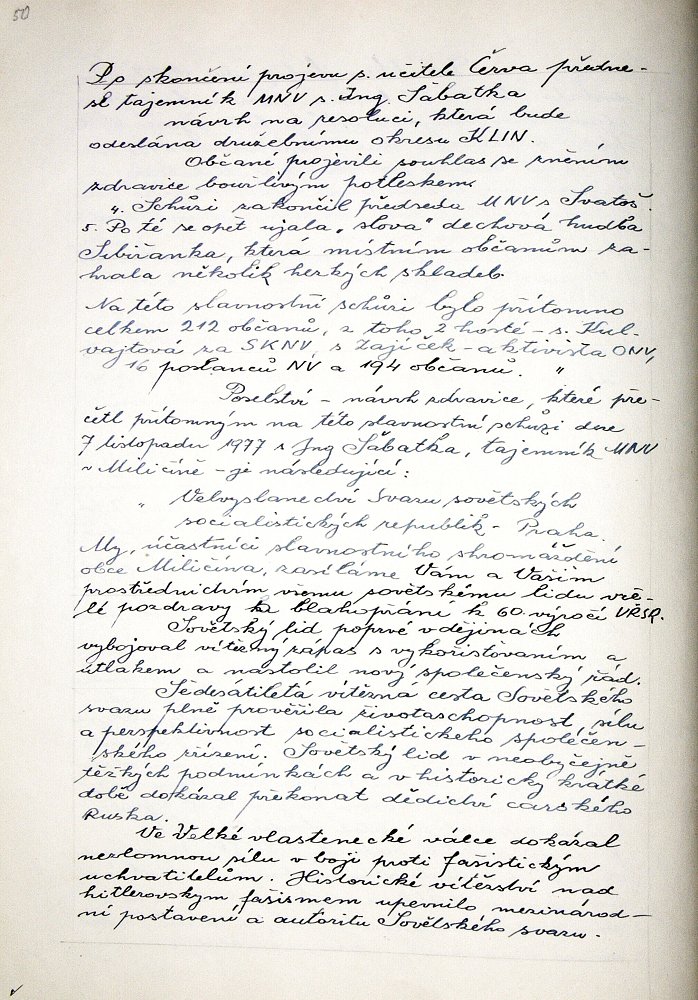 50
Po skončení projevu s. učitele Červa předne-
sl tajemník MNV s. Ing. Sabatka
návrh na resoluci, která bude
odeslána družebnímu okresu KLIN.
Občané projevili souhlas se zněním
zdravice bouřlivým potleskem.
4. Schůzi zakončil předseda MNV s Svatoš.
5. Po té se opět ujala „slova" dechová hudba
Sibiřanka, která místním občanům za-
hrála několik hezkých skladeb.
Na této slavnostní schůzi bylo přítomno
celkem 212 občanů, z toho 2 hosté - s. Kul-
vajtová za SKNV, s Zajíček - aktivista ONV,
16 poslanců NV a 194 občanů. "
Poselství - návrh zdravice, které pře-
četl přítomným na této slavnostní schůzi dne
7 listopadu 1977 s Ing Šabatka, tajemník MNV
v Miličíně - je následující:
„ Velvyslanectví Svazu sovětských
socialistických republik - Praha.
My, účastníci slavnostního shromáždění
obce Miličína, zasíláme Vám a Vaším
prostřednictvím všemu sovětskému lidu vře-
lé pozdravy k blahopřání k 60. výročí VŘSR.
Sovětský lid poprvé v dějinách
vybojoval vítězný zápas s vykořisťováním a
útlakem a nastolil nový společenský řád.
Šedesátiletá vítězná cesta Sovětského
svazu plně prověřila životaschopnost, sílu
a perspektivnost socialistického společen-
ského zřízení. Sovětský lid v neobyčejně
těžkých podmínkách a v historicky krátké
době dokázal překonat dědictví carského
Ruska.
Ve Velké vlastenecké válce dokázal
nezlomnou sílu v boji proti fašistickým
uchvatitelům. Historické vítězství nad
hitlerovským fašismem upevnilo mezinárod-
ní postavení a autoritu Sovětského svazu.